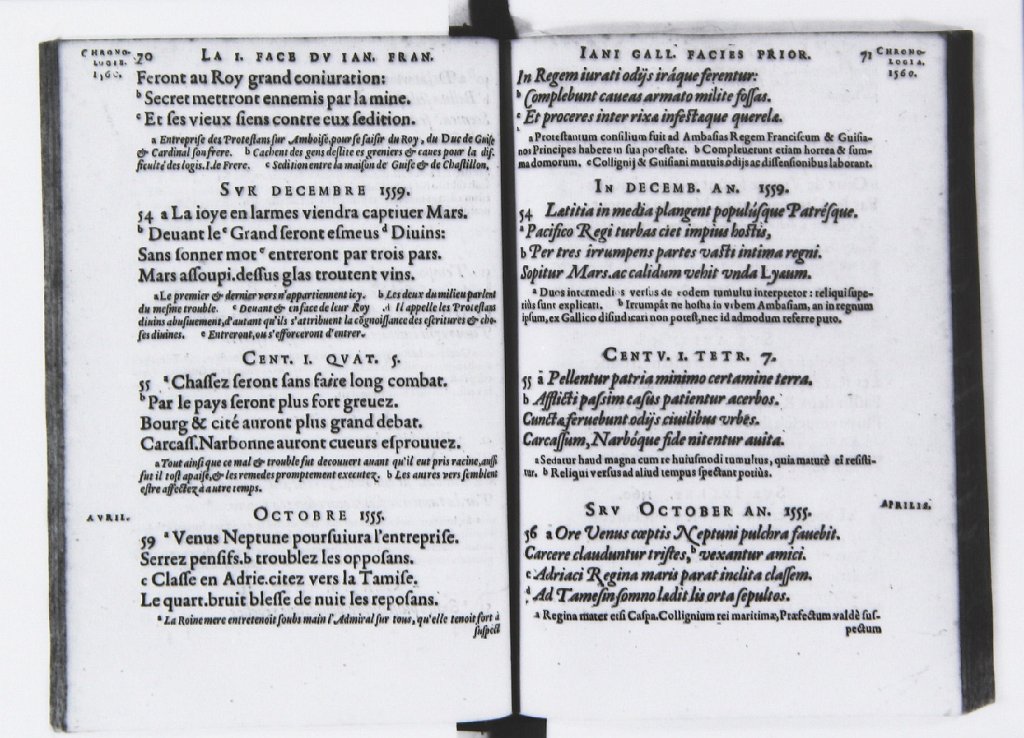 CHRONO-
LOGIE.
1560.
70 LA I. FACE DV IAN. FRAN.
Feront au Roy grand coniuration:
b Secret mettront ennemis par la mine.
c Et ses vieux siens contre eux sedition.
a Entreprise des Protestans sur Amboise, pour se saisir du Roy, du Duc de Guise
& Cardinal son frere. b Cachent des gens desliteés greniers & caues pour la dif-
ficulté des logis. I. le Frere. c Sedition entre la maison de Guise & de Chastillon.
SVR DECEMBRE 1559.
54 a La ioye en larmes viendra captiuer Mars.
b Deuant le c Grand seront esmeus d Diuins:
Sans sonner mot e entreront par trois pars.
Mars assoupi.dessus glas troutent vins.
a Le premier & dernier vers n'appartiennent icy. b Les deux du milieu parlent
du mesme trouble. c Deuant & en face de leur Roy d Il appelle les Protestans
diuins abusiuement, d'autant qu'ils s'attribuent la cõgnoissance des escritures & cho-
ses diuines. e Entreront, ou s'efforceront d'entrer.
CENT. I. QVAT. 5.
55 a Chassez seront sans faire long combat.
b Par le pays seront plus fort greuez.
Bourg & cité auront plus grand debat.
Carcass.Narbonne auront cueurs esprouuez.
a Tout ainsi que ce mal & trouble fut descouuert auant qu'il eut pris racine, aussi
fut il tost apaisé, & les remedes promptement executez. b Les autres vers semblent
estre affectez à autre temps.
AVRIL.
OCTOBRE 1555.
59 a Venus Neptune poursuiura l'entreprise.
Serrez pensifs. b troublez les opposans.
c Classe en Adrie.citez vers la Tamise.
Le quart.bruit blesse de nuit les reposans.
a La Roine mere entretenoit soubs main l'Admiral sur tous, qu'elle tenoit fort à
suspect
IANI GALL. FACIES PRIOR. 71
CHRONO-
LOGIA.
1560.
In Regem iurati odijs iráque ferentur:
b Complebunt caueas armato milite fossas.
c Et proceres inter rixæ infestæque querelæ.
a Protestantum consilium fuit ad Ambasias Regem Franciscum & Guisia-
nos Principes habere in sua potestate. b Compleuerunt etiam horrea & sum-
ma domorum. c Collignij & Guisiani mutuis odijs ac dissensionibus laborant.
IN DECEMB. AN. 1559.
54 Lætitia in media plangent populúsque Patrésque.
a Pacifico Regi turbas ciet impius hostis,
b Per tres irrumpens partes vasti intima regni.
Sopitur Mars.ac calidum vehit vnda Lyæum.
a Duos intermedios versus de eodem tumultu interpretor: reliqui supe-
riùs sunt explicati. b Irrumpát ne hostia in vrbem Ambasiam, an in regnum
ipsum, ex Gallico disiudicari non potest, nec id admodum referre puto.
CENTV. I. TETR. 7.
55 a Pellentur patria minimo certamine terra.
b Afflicti passim casus patientur acerbos.
Cuncta feruebunt odijs ciuilibus vrbes.
Carcassum, Narbóque fide nitentur auita.
a Sedatur haud magna cum re huiusmodi tumultus, quia maturè ei resisti-
tur. b Reliqui versus ad aliud tempus spectant potiùs.
APRILIS.
SRV OCTOBER AN. 1555.
56 a Ore Venus cœptis Neptuni pulchra fauebit.
Carcere clauduntur tristes, b vexantur amici.
c Adriaci Regina maris parat inclita classem.
d Ad Tamesin somno lædit lis orta sepultos.
a Regina mater etsi Caspa. Collignium rei maritimæ, Præfectum valdè sus-
pectum